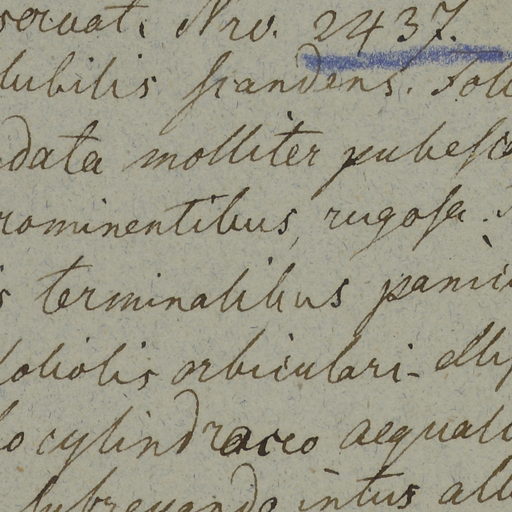 servat. Nro. 2437.
lubilis scandens. Foll
data molliter pubesc
rominentibus, rugosa.
s terminalibus panic
foliolis orbiculari-ellip
lo cylindraceo aequali
intus alb